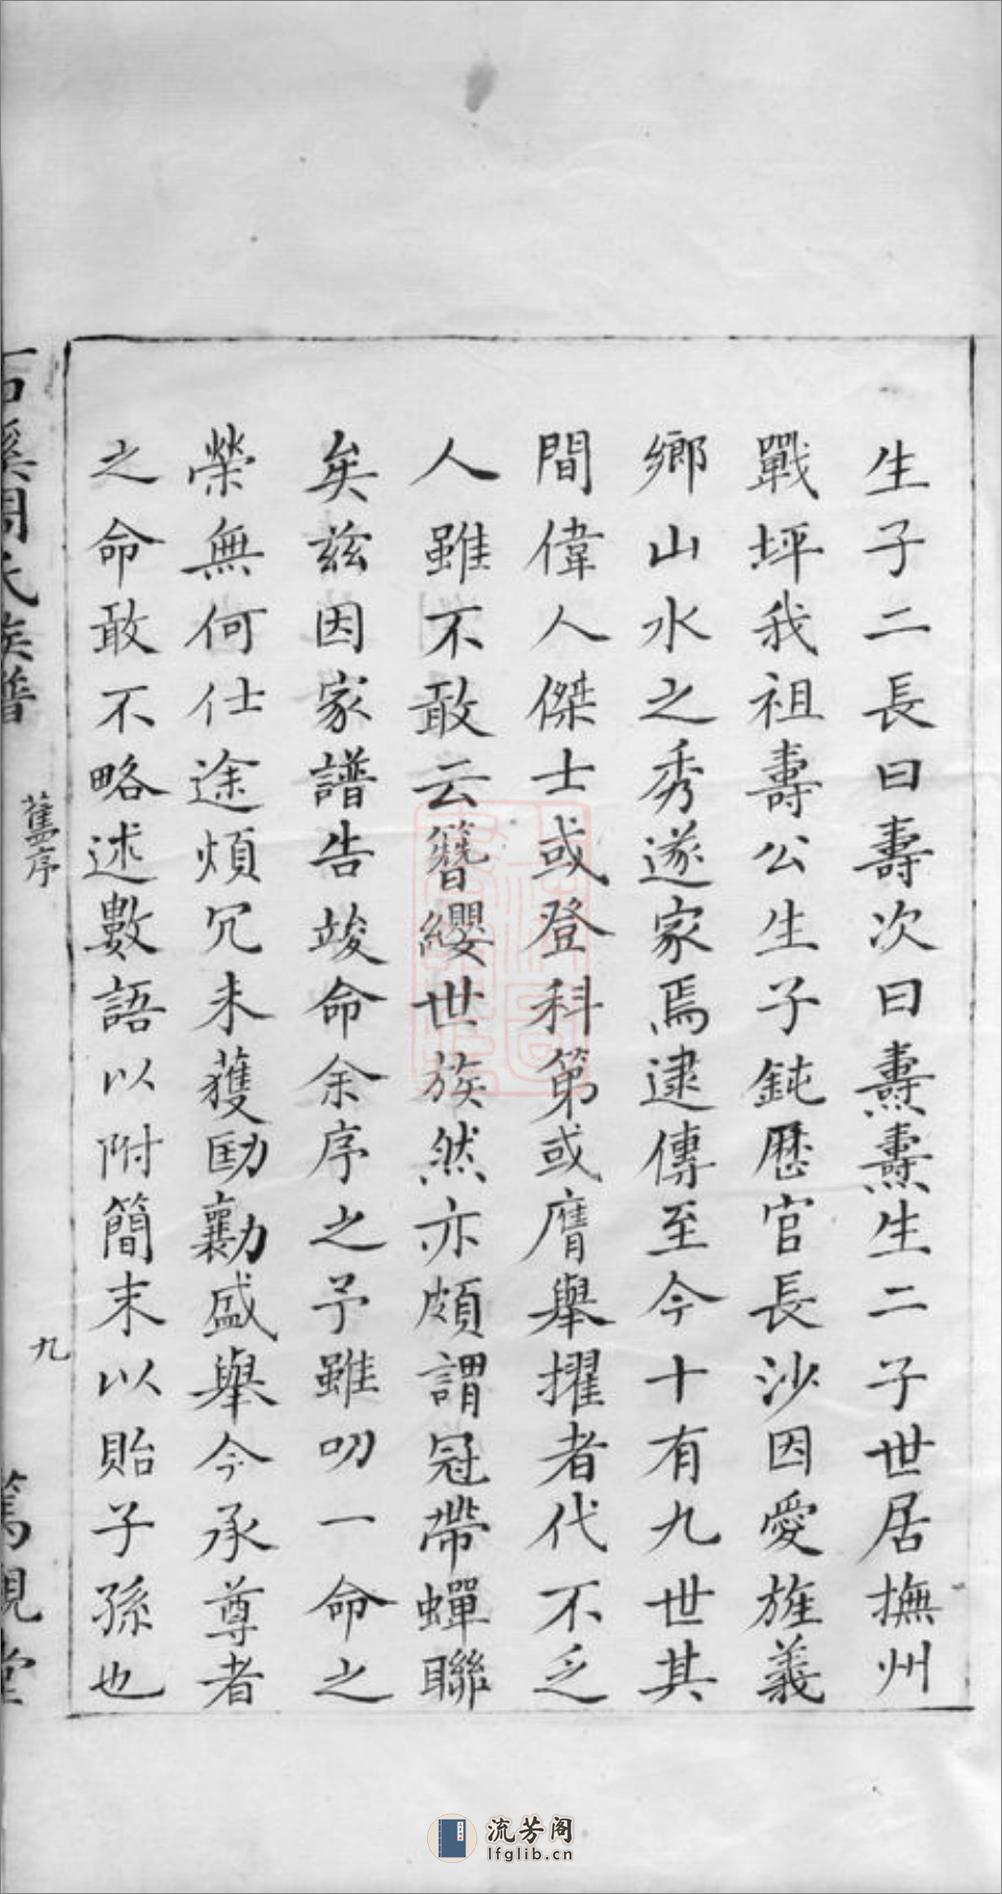 生子二長曰壽次曰燾燾生二子世居撫州
戰坪我祖壽公生子鈍歷官長沙因愛旌義
鄉山水之秀遂家焉逮傳至今十有九世其
間偉人傑士或登科第或膺舉擢者代不乏
人雖不敢云簪纓世族然亦頗謂冠帶蟬聯
矣茲因家譜告竣命余序之予雖叨一命之
榮無何仕途煩冗未獲勷盛舉今承尊者
之命敢不略述數語以附簡末以貽子孫也
石溪周氏族譜
舊序
九
篤親堂
流芳阁
lfglib.cn